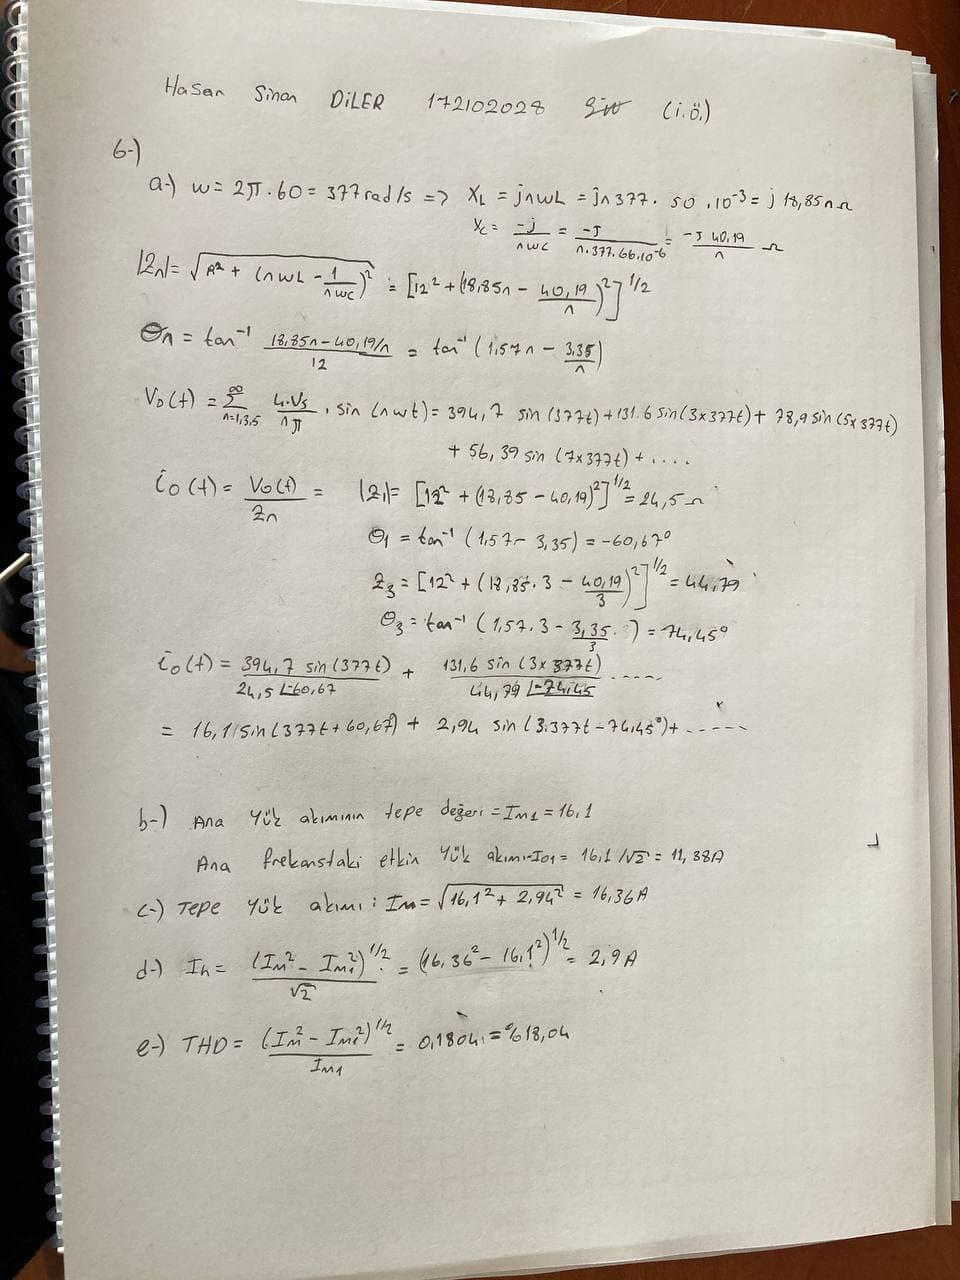 Hasan Sinan DİLER 172102028 (i.ö.)
6-)
a-) w = 2π.60 = 377 rad/s => XL = jnwL = jn377. 50.10^-3 = j 18,85n Ω
Xc = -j/nwc = -J/n.377.66.10^-6 = -J 40,19/n Ω
|Zn| = √(R² + (nwL - 1/nwc)²) = [12² + (18,85n - 40,19/n)²]^1/2
Θn = tan^-1 (18,85n - 40,19/n)/12 = tan^-1 (1,57n - 3,35/n)
Vo(t) = ∞Σn=1,3,5 4.Vs/nπ . sin (nwt) = 394,7 sin (377t) + 131.6 sin(3x377t) + 78,9 sin(5x377t)
+ 56,39 sin (7x377t) + ....
io(t) = Vo(t)/Zn = |Z1| = [12² + (18,85 - 40,19)²]^1/2 = 24,5 Ω
Θ1 = tan^-1 (1,57 - 3,35) = -60,67°
Z3 = [12² + (18,85.3 - 40,19/3)²]^1/2 = 44,79
Θ3 = tan^-1 (1,57.3 - 3,35/3) = 74,45°
io(t) = 394,7 sin (377t)/24,5 ∠-60,67 + 131,6 sin (3x377t)/44,79 ∠-74,45 .....
= 16,1 sin(377t + 60,67) + 2,94 sin (3.377t - 74,45°) + .....
b-) Ana Yük akımının tepe değeri = Im1 = 16,1
Ana frekanstaki etkin Yük akımı-Io1 = 16,1/√2 = 11,38A
c-) Tepe Yük akımı : Im = √(16,1² + 2,94²) = 16,36A
d-) Ih = (Im² - Im1²)^1/2/√2 = (16,36² - 16,1²)^1/2 = 2,9 A
e-) THD = (Im² - Im1²)^1/2/Im1 = 0,1804 = %18,04